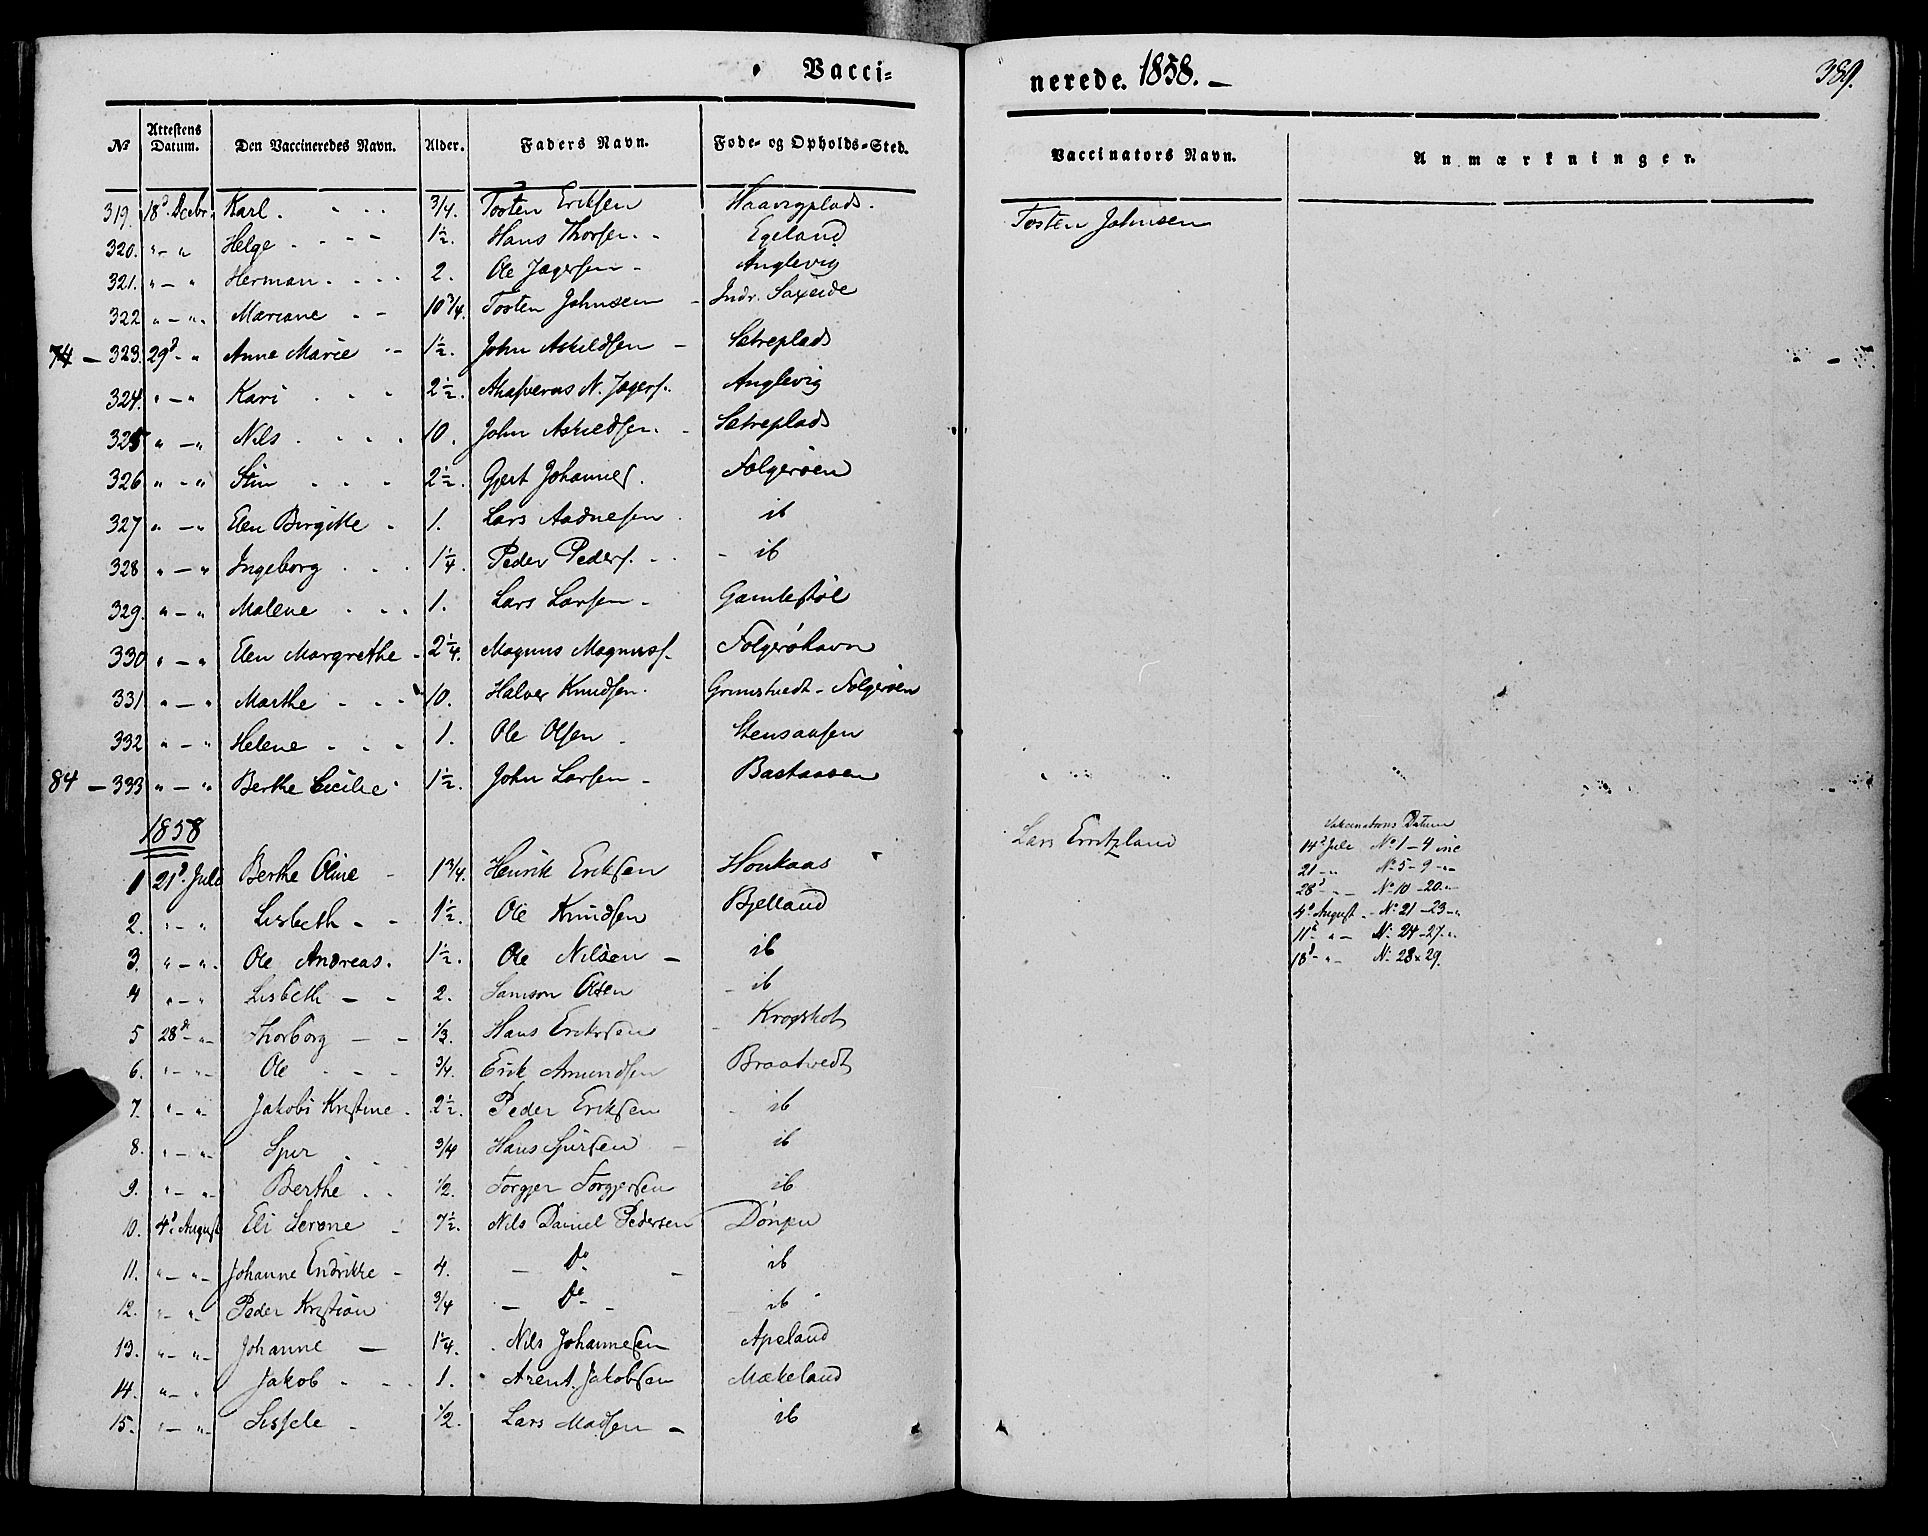 Vacci-
nerede. 1858. —
389.
№ | Attestens Datum. | Den Vaccineredes Navn. | Alder. | Faders Navn. | Føde- og Opholds-Sted. | Vaccinators Navn. | Anmærkninger.
319. 18d Decbr. Karl. 3/4. Tosten Eriksen Haavigplads. Tosten Johnsen
320. " — " Helge 1 1/2. Hans Thorsen. Egeland
321. " — " Herman. 2. Ole Jægersen Anglevig
322 " — " Mariane 10 3/4. Tosten Johnsen Indr. Saxeide
74 — 323. 29d — " Anne Marie 1 1/2. John Askildsen Sætreplads
324. " — " Kari 2 1/2. Ahasverus N. Jægers. Anglevig
325 " — " Nils 10. John Askildsen. Sætreplads
326 " — " Stin 2 1/2. Gjert Johannes. Folgerøen
327 " — " Elen Birgitte 1. Lars Aadnesen ib
328 " — " Ingeborg 1 1/4. Peder Peders. ib
329. " — " Malene 1. Lars Larsen Gamlestøl
330 " — " Elen Margrethe 2 1/4. Magnus Magnuss. Folgerøhavn
331 " — " Marthe 10. Halver Knudsen. Grimstvedt - Folgerøen
332 " — " Helene 1. Ole Olsen Stensaasen
84 — 333 " — " Berthe Cecilie 1 1/2. John Larsen Bastaasen
1858
1 21d. Juli Berthe Oline 1 3/4. Henrik Eriksen Houkaas Lars Erritzland
2. " — " Lisbeth 1 1/2. Ole Knudsen Bjelland
3. " — " Ole Andreas. 1 1/2. Ole Nilsen ib
4 " — " Lisbeth 2. Samson Olsen ib
5 28d — " Thorborg 1/3. Hans Eriksen Krogshot
6. " — " Ole 3/4. Erik Amundsen Braatvedt
7. " — " Jakobi Kristine 2 1/2. Peder Eriksen ib
8. " — " Spur 3/4 Hans Spursen ib
9. " — " Berthe 1/2. Torgjer Torgjersen ib
10. 4d August Eli Serene 7 1/2. Nils Daniel Pedersen
11. " — " Johanne Endrikke 4. Do ib
12. " — " Peder Kristian 3/4 Do ib
13. " — " Johanne 1 1/4. Nils Johannesen Apeland
14. " — " Jakob 1. Arent Jakobsen Mækeland
15. " — " Sissele 1/2. Lars Madsen ib
Vakcinations Datum
14d Juli No 1 — 4 inc
21 — " No 5 — 9 — "
28d — " — No 10 — 20 "
4d August — No 21 — 23 — "
11d " — No 24 — 27 "
18d — " — No 28 & 29.